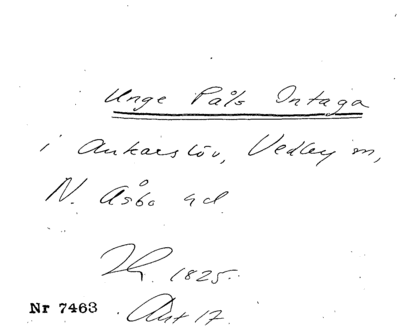 Unge Påls Intaga
i Ankarslöv, Vedby sn,
N. Åsbo hd
1825.
Nr 7463
Akt 17